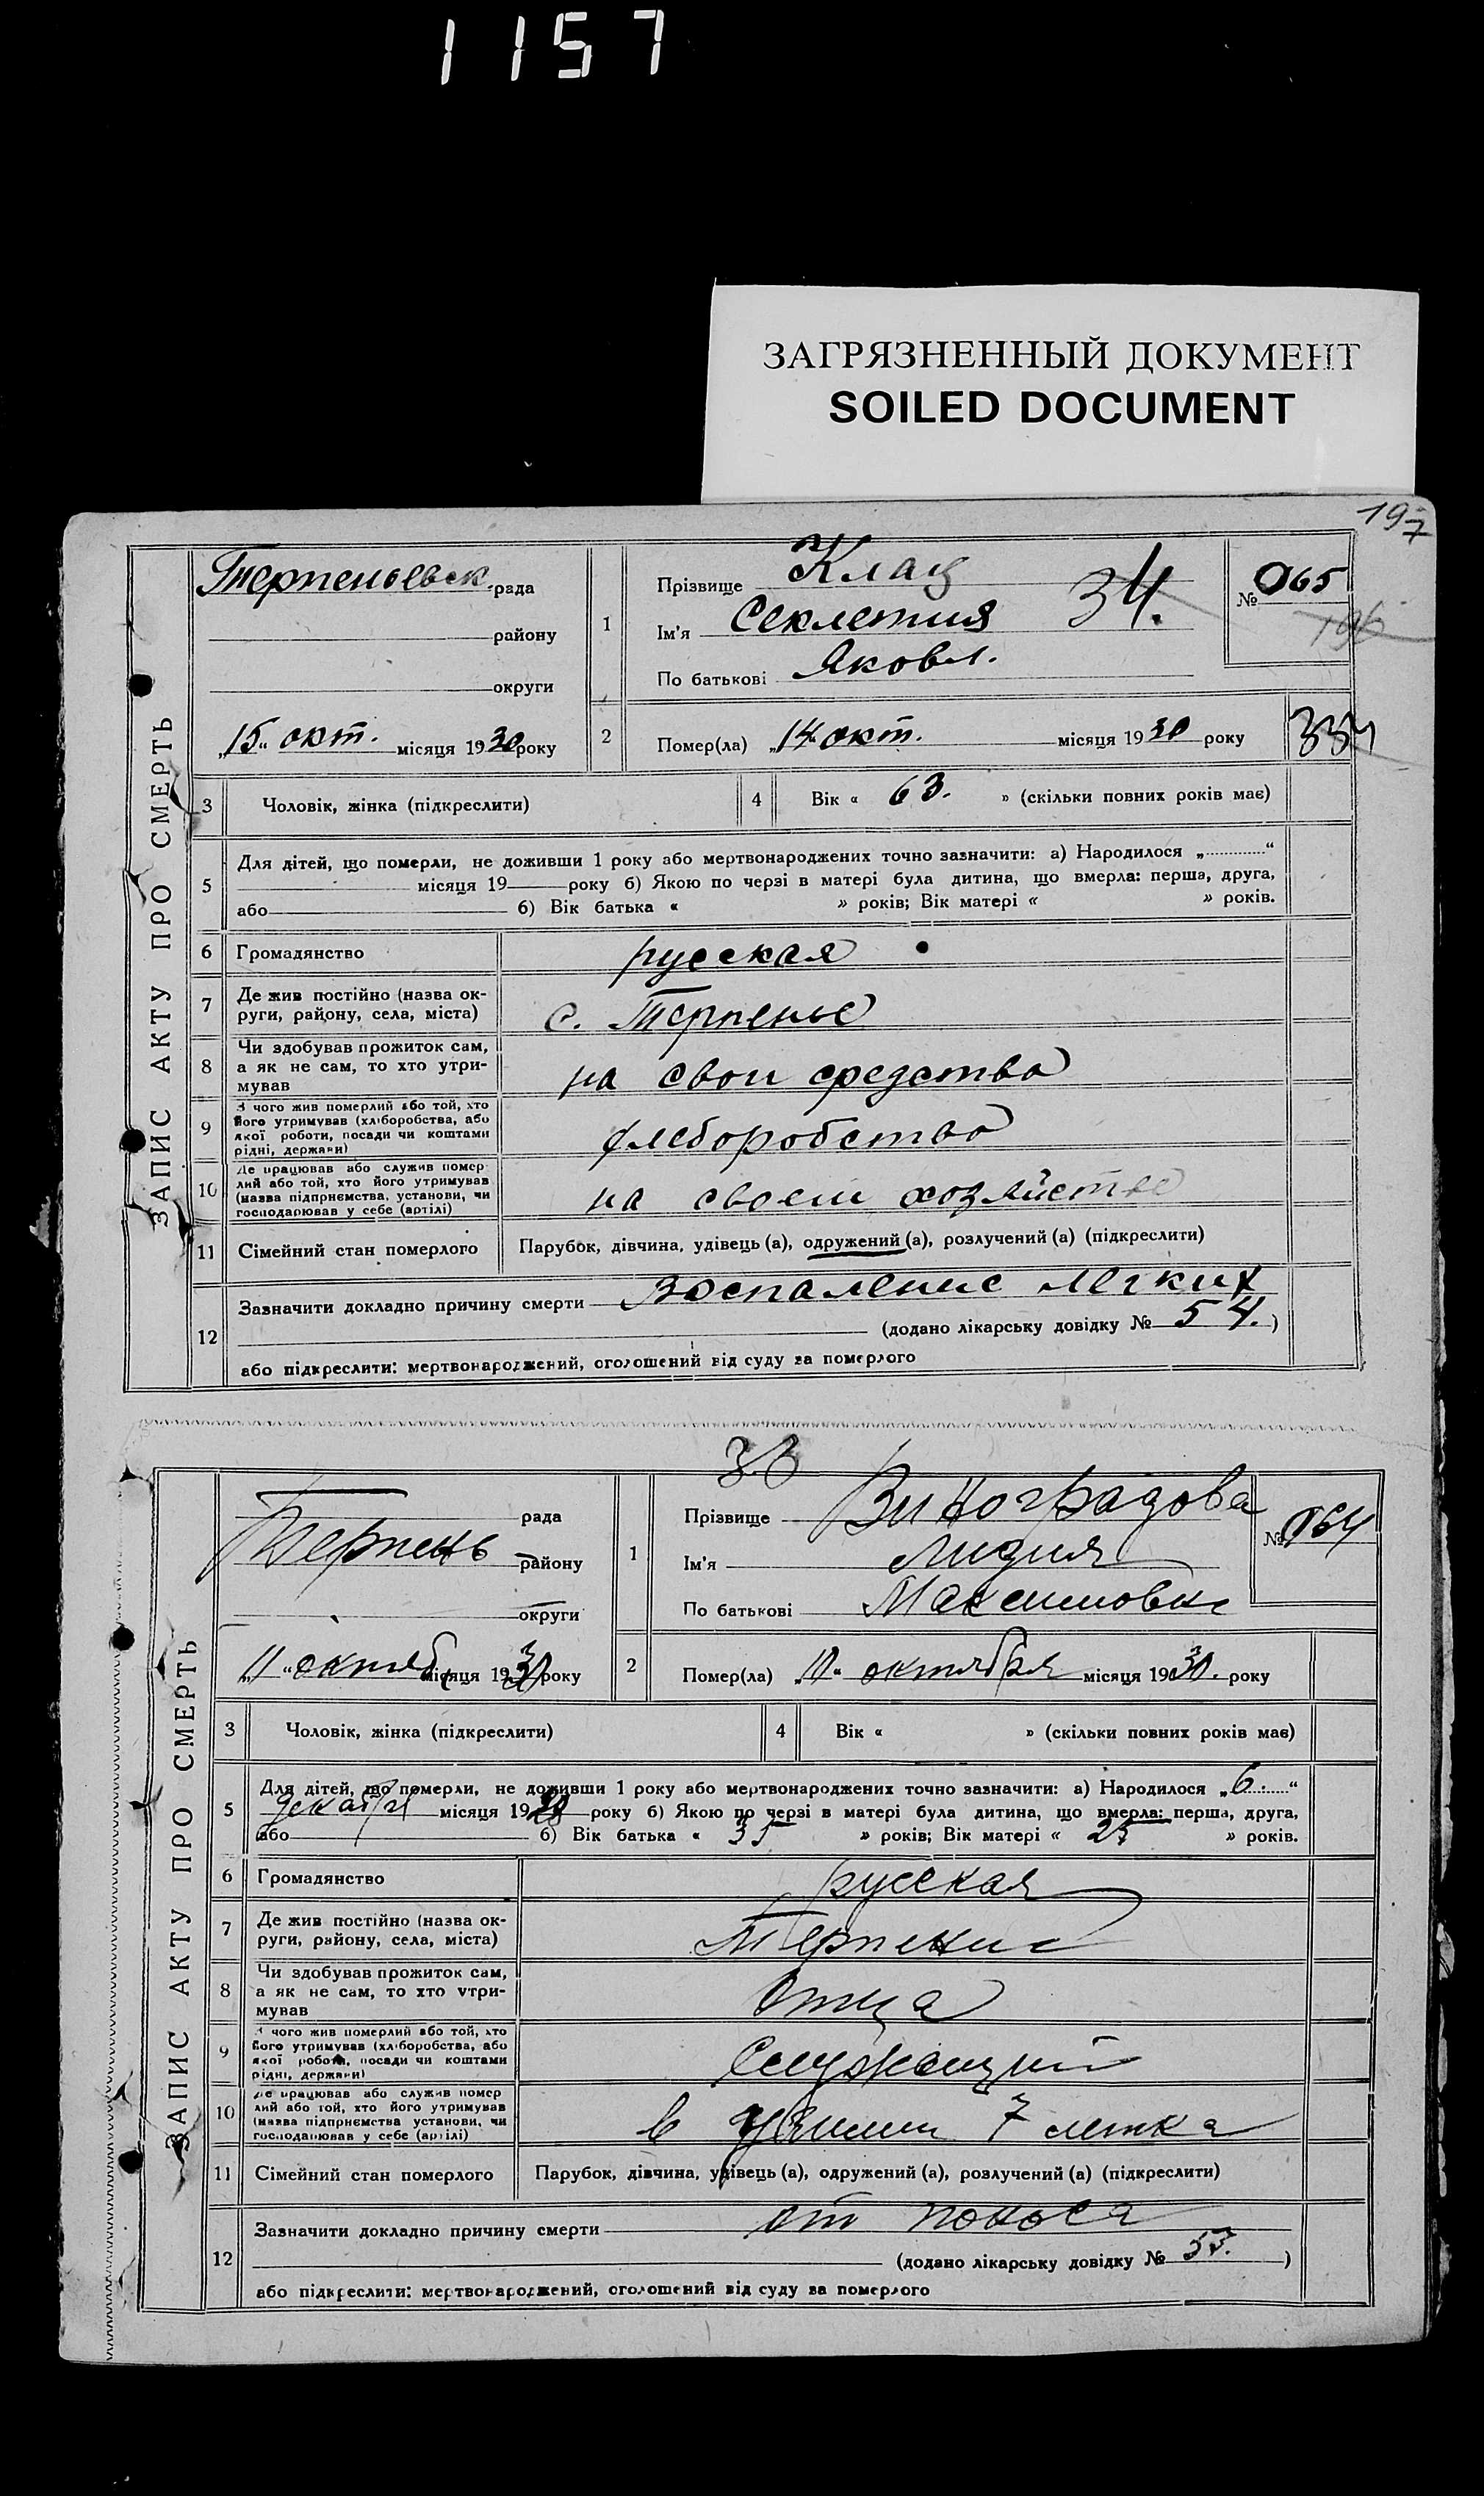 1157
ЗАГРЯЗНЕННЫЙ ДОКУМЕНТ
SOILED DOCUMENT
197
ЗАПИС АКТУ ПРО СМЕРТЬ
Терпеньевск. рада
району
округи
„15“ окт. місяця 1930 року
1 Прізвище Клац
Ім'я Секлетия 34.
По батькові Яковл.
№ 065
196
2 Помер(ла) „14“ окт. місяця 1930 року
334
3 Чоловік, жінка (підкреслити)
4 Вік « 63. » (скільки повних років має)
5 Для дітей, що померли, не доживши 1 року або мертвонароджених точно зазначити: а) Народилося „ “
місяця 19 року б) Якою по черзі в матері була дитина, що вмерла: перша, друга,
або б) Вік батька « » років; Вік матері « » років.
6 Громадянство русская
7 Де жив постійно (назва ок-
руги, району, села, міста) с. Терпенье
8 Чи здобував прожиток сам,
а як не сам, то хто утри-
мував на свои средства
9 З чого жив померлий або той, хто
його утримував (хліборобства, або
якої роботи, посади чи коштами
рідні, держави) хлеборобство
10 Де працював або служив помер
лий або той, хто його утримував
(назва підприємства, установи, чи
господарював у себе (артілі) на своем хозяйстве
11 Сімейний стан померлого Парубок, дівчина, удівець (а), одружений (а), розлучений (а) (підкреслити)
12 Зазначити докладно причину смерти Воспаление легких
(додано лікарську довідку № 54.)
або підкреслити: мертвонароджений, оголошений від суду за померлого
ЗАПИС АКТУ ПРО СМЕРТЬ
рада
Терпень району
округи
„11“ октяб місяця 1930 року
1 Прізвище Виноградова
Ім'я Лидия
По батькові Максимовн
№ 064
2 Помер(ла) „10“ октября місяця 1930. року
3 Чоловік, жінка (підкреслити)
4 Вік « » (скільки повних років має)
5 Для дітей, що померли, не доживши 1 року або мертвонароджених точно зазначити: а) Народилося „6.“
декабря місяця 19 року б) Якою по черзі в матері була дитина, що вмерла: перша, друга,
або б) Вік батька « 35 » років; Вік матері « 25 » років.
6 Громадянство русская
7 Де жив постійно (назва ок-
руги, району, села, міста) Терпение
8 Чи здобував прожиток сам,
а як не сам, то хто утри-
мував Отца
9 З чого жив померлий або той, хто
його утримував (хліборобства, або
якої роботи, посади чи коштами
рідні, держави) Служащий
10 Де працював або служив помер
лий або той, хто його утримував
(назва підприємства установи, чи
господарював у себе (артілі) в 7 летка
11 Сімейний стан померлого Парубок, дівчина, удівець (а), одружений (а), розлучений (а) (підкреслити)
12 Зазначити докладно причину смерти от поноса
(додано лікарську довідку № 53.)
або підкреслити: мертвонароджений, оголошений від суду за померлого